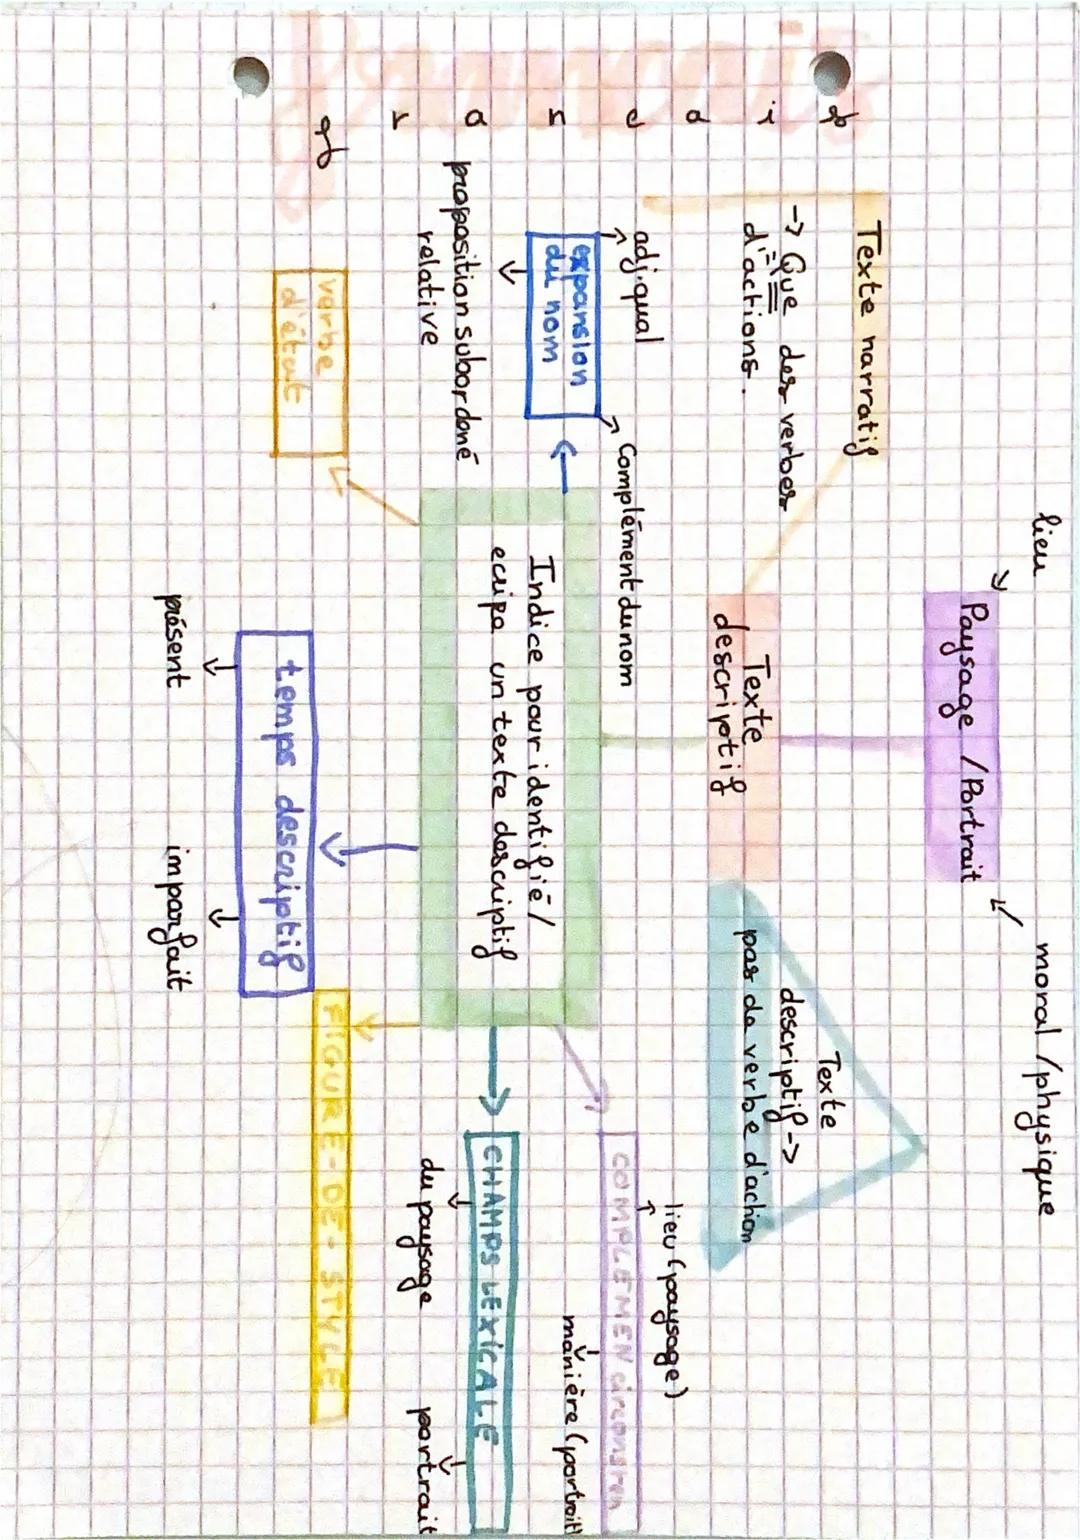 français
f r a n c a i s
lieu
moral / physique
Paysage / Portrait
Texte narratif
-> Que des verbes
d'actions.
Texte
descriptif
Texte
descriptif ->
pas de verbe d'action
adj. qual
Complément du nom
expansion
du nom
proposition subordoné
relative
lieu (paysage)
COMPLEMEN circonsten
manière (portrait)
Indice pour identifié /
ecripe un texte descriptif
CHAMPS LEXICALE
du paysage
portrait
verbe
d'état
FIGURE-DE-STYLE
temps descriptif
présent
imparfait